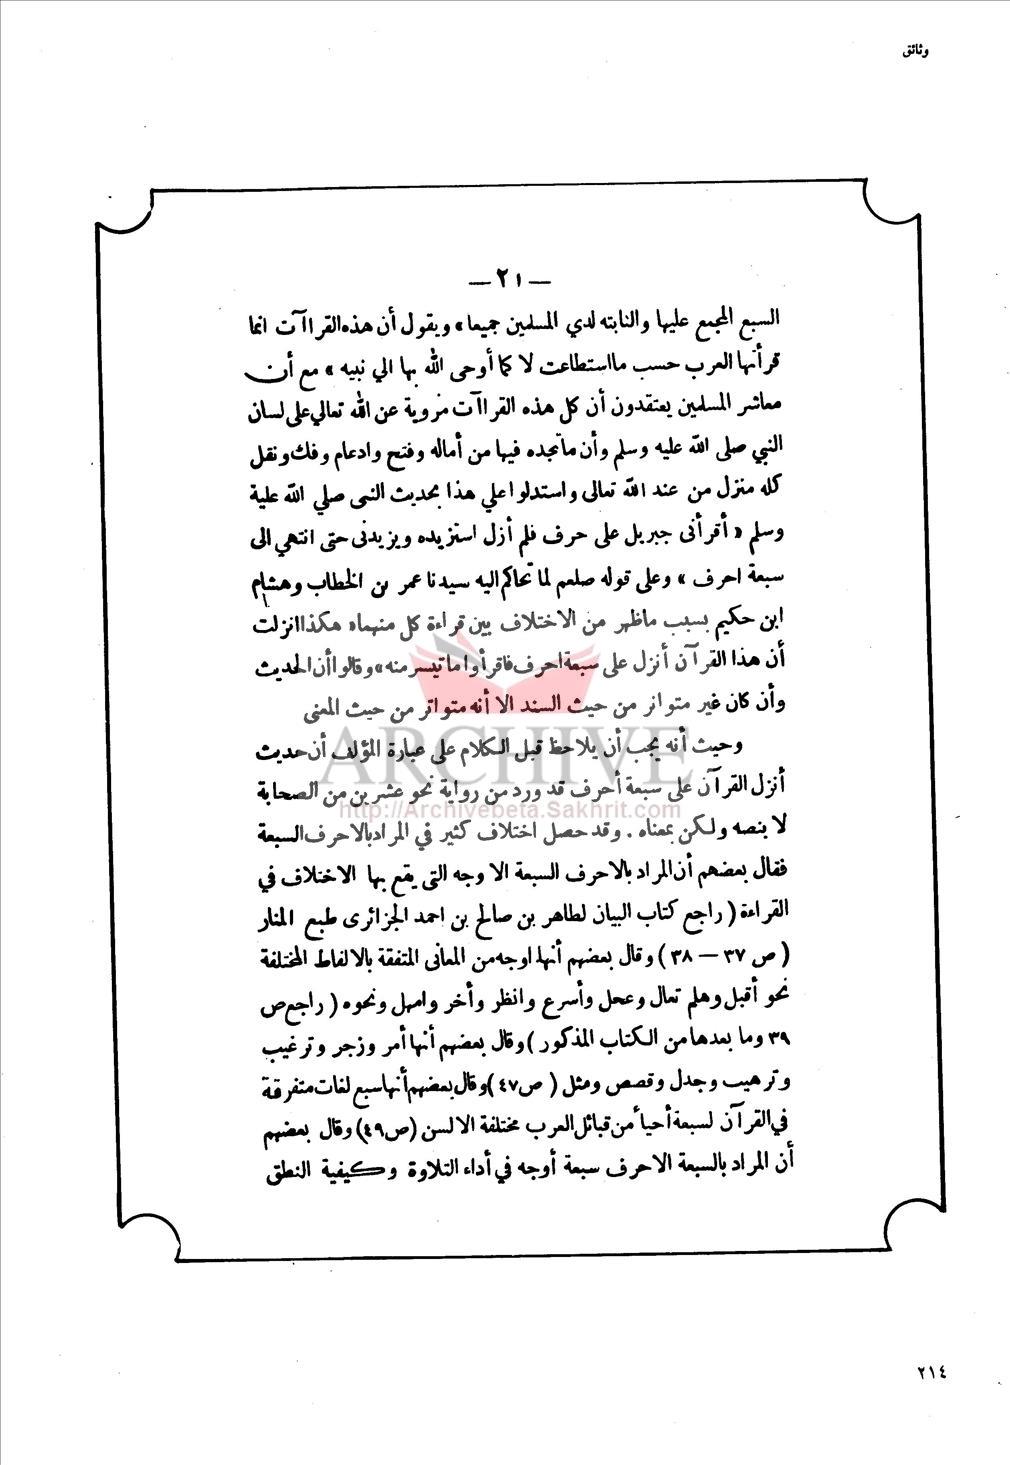 وثائق
— ٢١ —
السبع المجمع عليها والثابته لدي المسلمين جميعا» ويقول أن هذه القراآت انما
قرأتها العرب حسب مااستطاعت لا كما أوحى الله بها الي نبيه » مع أن
معاشر المسلمين يعتقدون أن كل هذه القراآت مروية عن الله تعالي على لسان
النبي صلى الله عليه وسلم وأن ماتجده فيها من أماله وفتح وادغام وفك ونقل
كله منزل من عند الله تعالى واستدلوا علي هذا بحديث النبى صلي الله علية
وسلم « أقرأنى جبريل على حرف فلم أزل استزيده ويزيدنى حتى انتهي الى
سبعة احرف » وعلى قوله صلعم لما تحاكم اليه سيدنا عمر بن الخطاب وهشام
ابن حكيم بسبب ماظهر من الاختلاف بين قراءة كل منهما« هكذا انزلت
أن هذا القرآن أنزل على سبعة احرف فاقرأوا ما تيسر منه» وقالوا أن الحديث
وأن كان غير متواتر من حيث السند الا أنه متواتر من حيث المعنى
وحيث أنه يجب أن يلاحظ قبل الكلام على عبارة المؤلف أن حديث
أنزل القرآن على سبعة أحرف قد ورد من رواية نحو عشرين من الصحابة
لا بنصه ولكن بمعناه . وقد حصل اختلاف كثير في المراد بالاحرف السبعة
فقال بعضهم أن المراد بالاحرف السبعة الاوجه التى يقع بها الاختلاف في
القراءة ( راجع كتاب البيان لطاهر بن صالح بن احمد الجزائرى طبع المنار
( ص ٣٧ — ٣٨ ) وقال بعضهم أنها اوجه من المعانى المتفقة بالالفاط المختلفة
نحو أقبل وهلم تعال وعجل وأسرع وانظر وأخر وامهل ونحوه ( راجع ص
٣٩ وما بعدها من الكتاب المذكور ) وقال بعضهم أنها أمر وزجر وترغيب
وترهيب وجدل وقصص ومثل ( ص ٤٧ )وقال بعضهم أنها سبع لغات متفرقة
في القرآن لسبعة أحياً من قبائل العرب مختلفة الالسن (ص ٤٩) وقال بعضهم
أن المراد بالسبعة الاحرف سبعة أوجه في أداء التلاوة وكيفية النطق
ARCHIVE
http://Archivebeta.Sakhrit.com
٢١٤